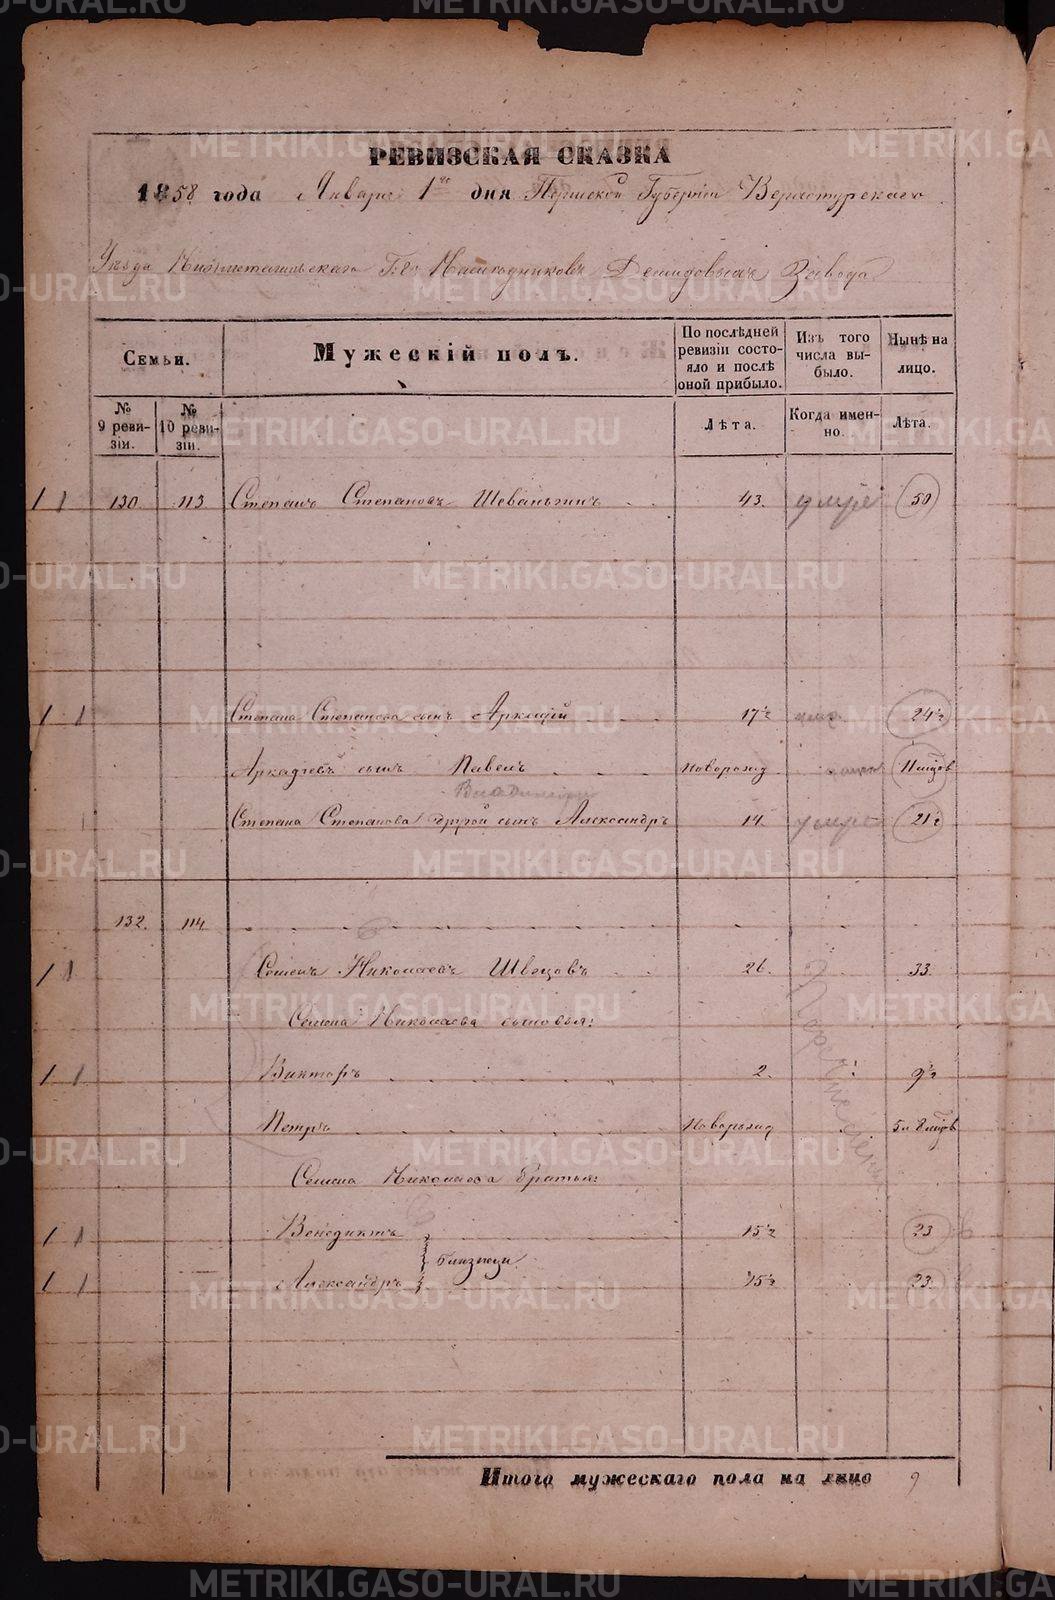 РЕВИЗСКАЯ СКАЗКА
1858 года Января 1го дня Пермской Губернiи Верхотурскаго
Уѣзда Нижнетагильскаго Г.г. Наслѣдниковъ Демидовыхъ Завода
Семьи.
Мужескiй полъ.
По послѣдней ревизiи состояло и послѣ оной прибыло.
Изъ того числа выбыло.
Нынѣ на лицо.
№ 9 ревизiи.
№ 10 ревизiи.
Лѣта.
Когда именно.
Лѣта.
130. 113 Степанъ Степановъ Шеваньгинъ 43. умре 50
Степана Степанова сынъ Аркадiй 17½ умре 24½
Аркадiевъ сынъ Павелъ новорожд 11 мцовъ
Владимiръ
Степана Степанова другой сынъ Александръ 14. умре 21½
132. 114
Семенъ Николаевъ Швецовъ 26. 33.
Семена Николаева сыновья:
Викторъ 2. 9½
Петръ новорожд 5 л 8 мцовъ
Семена Николаева братья:
Венедиктъ 15½ 23
близнецы
Александръ 15½ 23
Итого мужескаго пола на лицо 9
METRIKI.GASO-URAL.RU